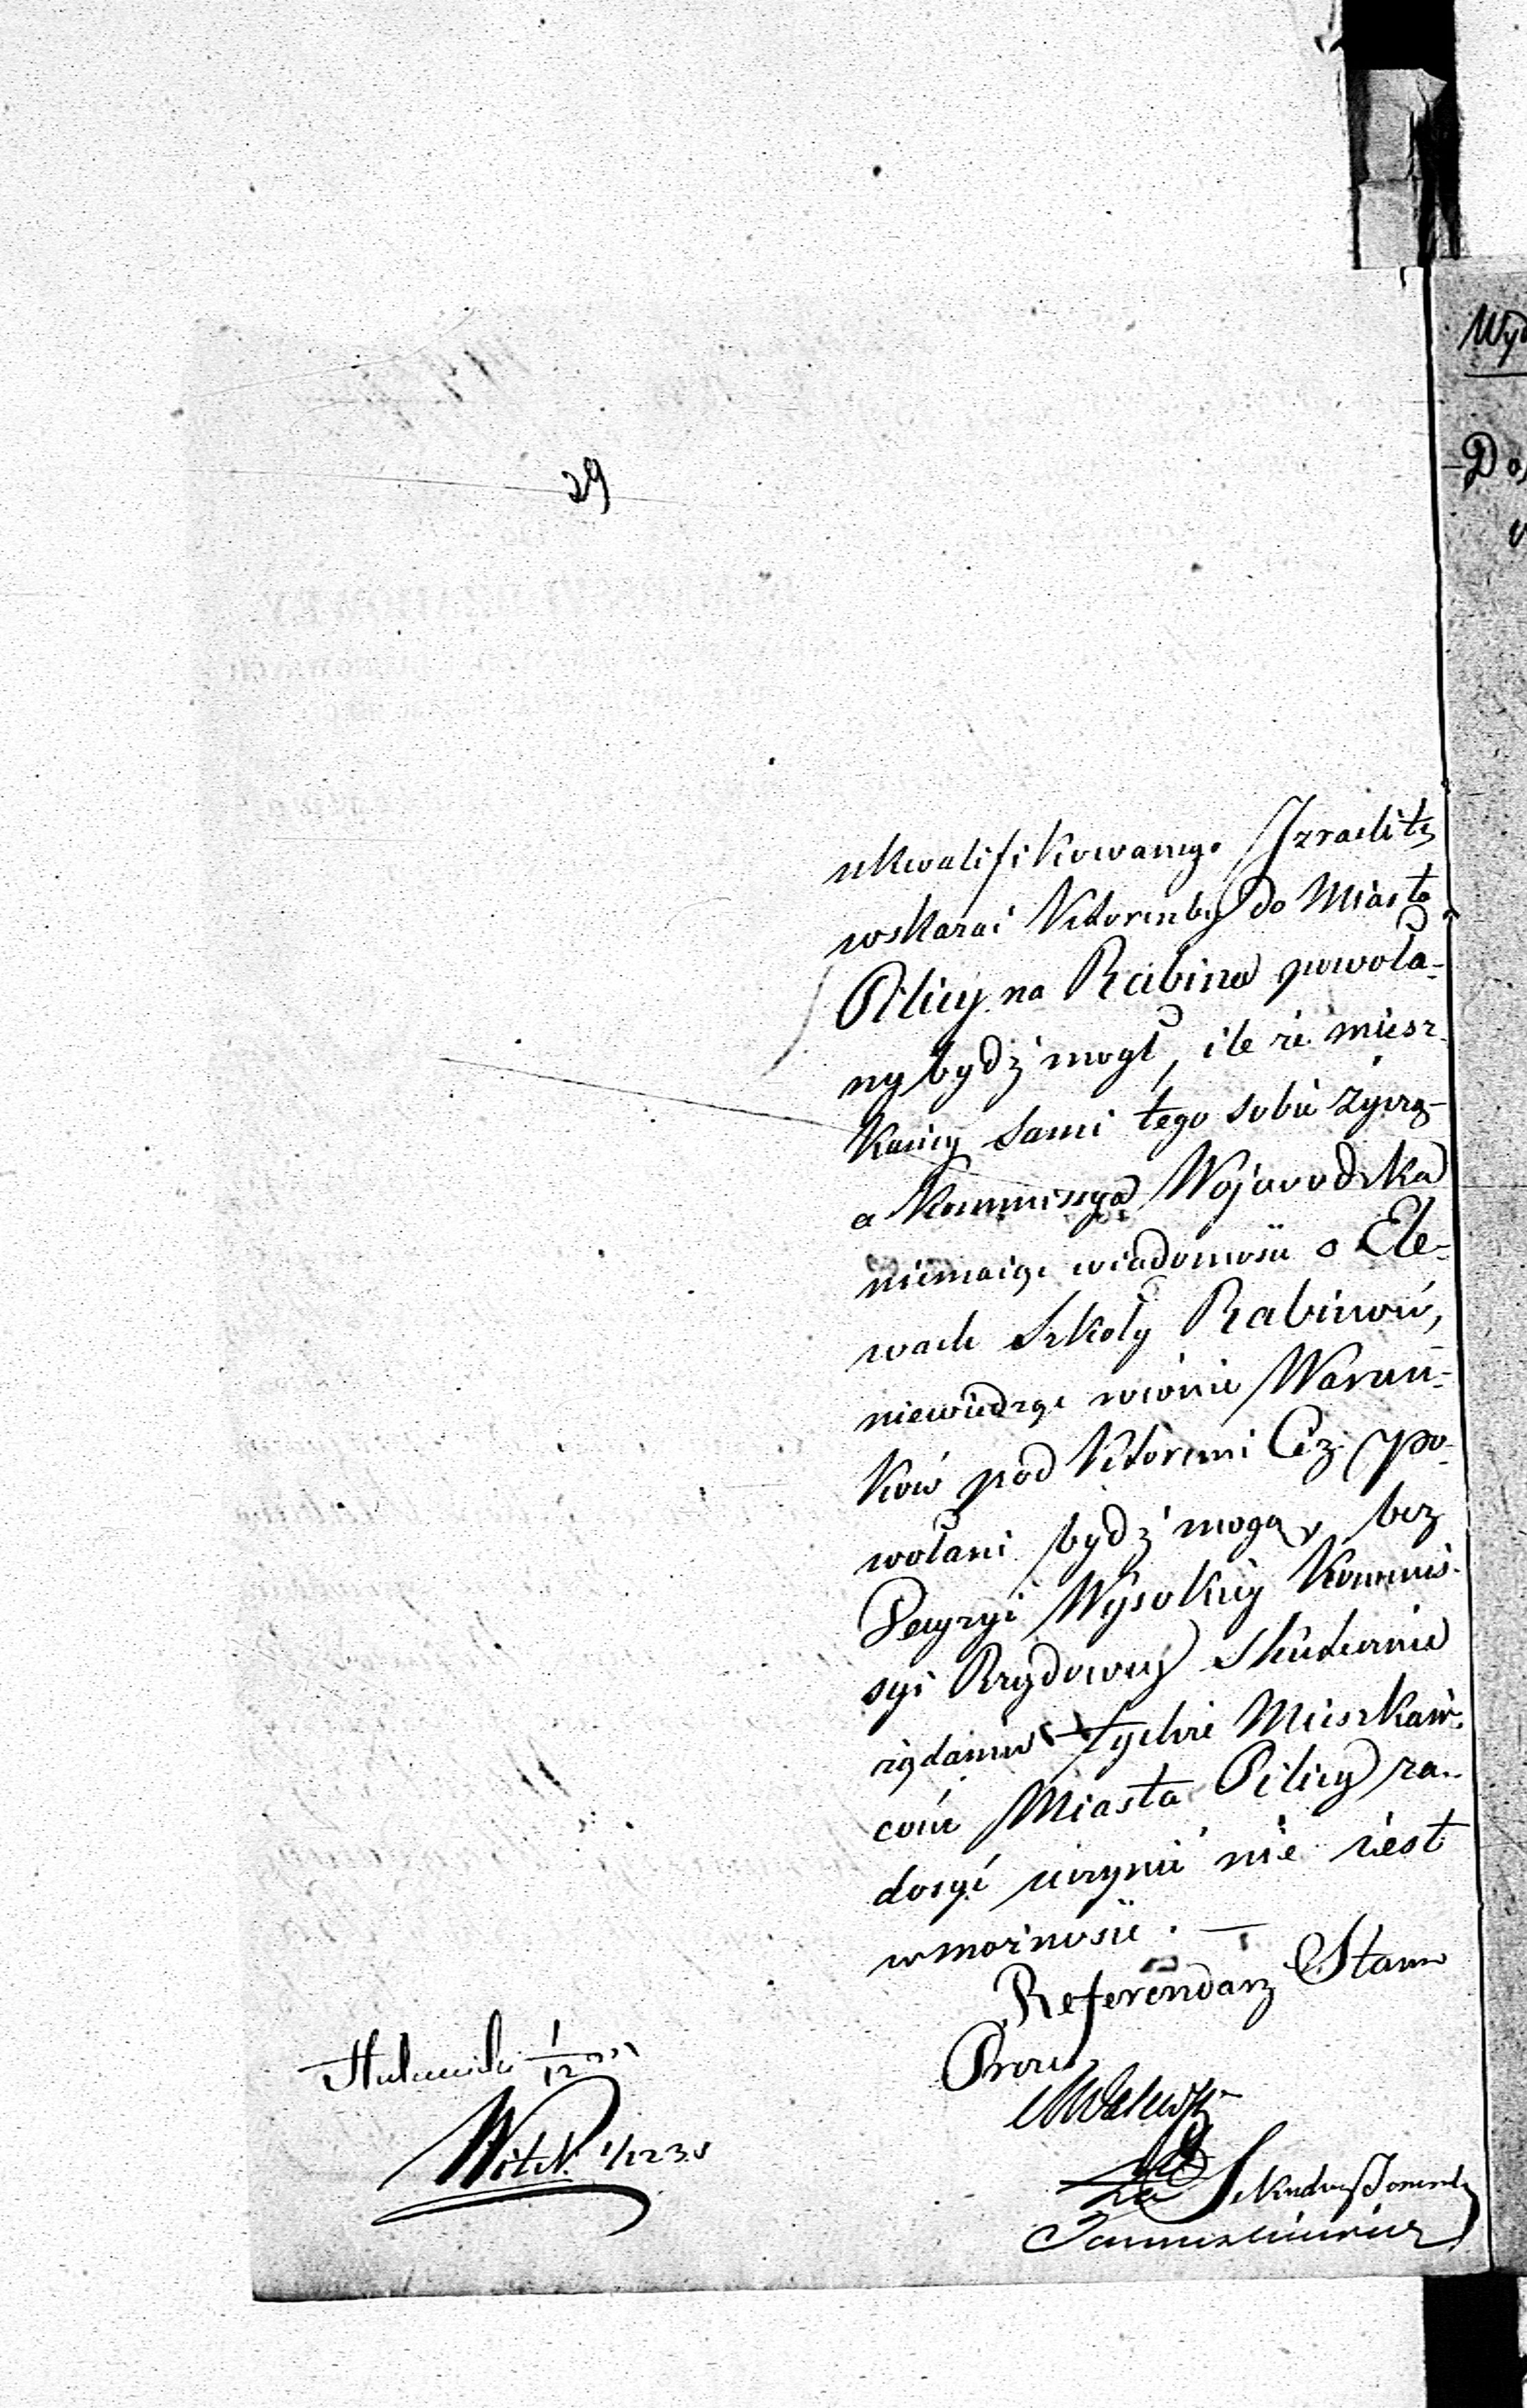 29
ukwalifikowanego Izraelitę
wskazać którenby do Miasta
Pilicy na Rabina powoła-
ny bydź mogł, ile że miesz-
kańcy sami tego sobie życzą
a Kommissya Wojewodzka
niemaiąc wiadomości o Ele-
wach Szkoły Rabinów,
niewiedząc rownie Warun-
ków pod któremi Ciż po-
wołani bydź mogą, bez
Decyzyi Wysokiey Kommis-
syi Rządowey skutecznie
żądaniu tychże Mieszkań-
ców Miasta Pilicy za-
dosyć uczynić nie iest
w możności. —
Referendarz Stanu
Prezes
Za Sekretarza
Wyd
Do